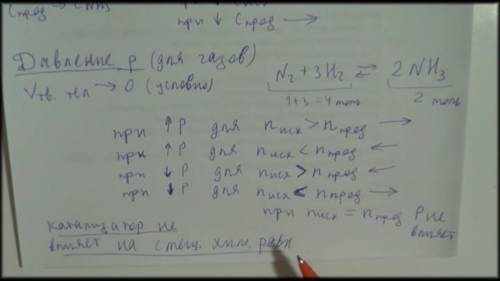 Cпрод → CNH3
при ↓ Cпрод →
Давление p (для газов)
Vтв. тел → 0 (условно)
N2 + 3H2 ⇄ 2NH3
1+3 = 4 моль 2 моль
при ↑ P для nисх > nпрод →
при ↑ P для nисх < nпрод ←
при ↓ P для nисх > nпрод ←
при ↓ P для nисх < nпрод →
при nисх = nпрод P не
влияет
катализатор не
влияет на смещ. хим. равн